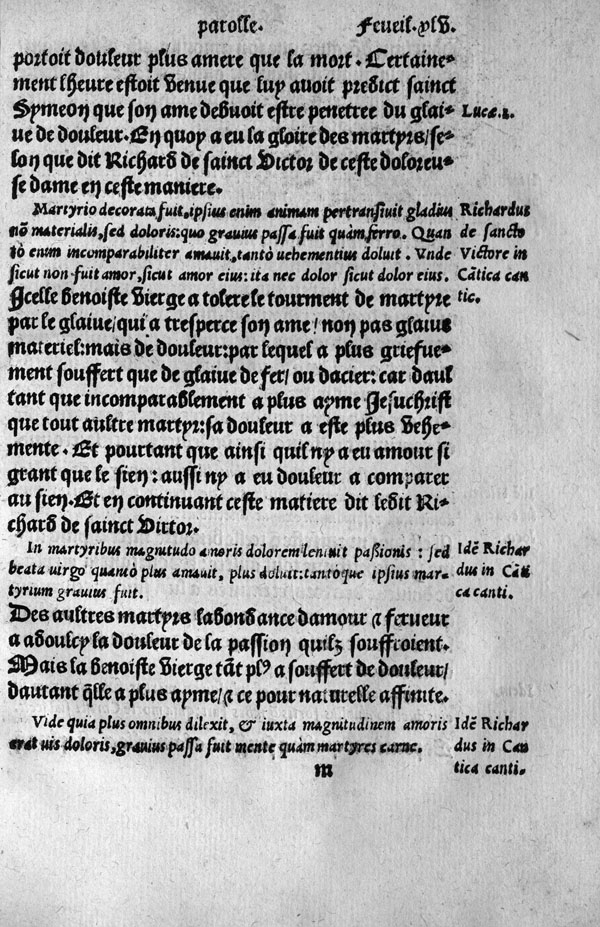 parolle. Fcueil. xlv.
portoit douleur plus amere que la mort. Certaine-
ment lheure estoit venue que luy avoit predict sainct
Symeon que son ame debuoit estre penetree du glai- Lucæ.2.
ue de douleur. En quoy a eu la gloire des martyrs/se-
lon que dit Richard de sainct Victor de ceste doloreu-
se dame en ceste maniere.
Martyrio decorata fuit, ipsius enim animam pertransiuit gladius Richardus
nõ materialis, sed doloris: quo grauius passa fuit quàm ferro. Quan de sancto
tò enim incomparabiliter amauit, tantò uehementius doluit. Vnde Victore in
sicut non fuit amor, sicut amor eius: ita nec dolor sicut dolor eius. Cãtica can
Icelle benoiste vierge a tolere le tourment de martyre tic.
par le glaiue/qui a tresperce son ame/non pas glaiue
materiel: mais de douleur: par lequel a plus griefue-
ment souffert que de glaiue de fer/ou dacier: car daul
tant que incomparablement a plus ayme Jesuchrist
que tout aultre martyr: sa douleur a este plus vehe-
mente. Et pourtant que ainsi quil ny a eu amour si
grant que le sien: aussi ny a eu douleur a comparer
au sien. Et en continuant ceste matiere dit ledit Ri-
chard de sainct Victor.
In martyribus magnitudo amoris dolorem leniuit passionis: sed Idẽ Richar
beata uirgo quantò plus amauit, plus doluit: tantoque ipsius mar- dus in Cãti
tyrium grauius fuit. ca canti.
Des aultres martyrs labondance damour & ferueur
a adoulcy la douleur de la passion quilz souffroient.
Mais la benoiste vierge tãt plꝰ a souffert de douleur/
dautant q̃lle a plus ayme/& ce pour naturelle affinite.
Vide quia plus omnibus dilexit, & iuxta magnitudinem amoris Idẽ Richar
erat uis doloris, grauius passa fuit mente quàm martyres carne. dus in Can
m tica canti.